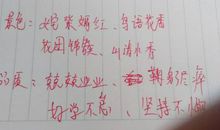 景色：姹紫嫣红、鸟语花香
花团锦簇、山清水秀
品质：兢兢业业、鞠躬尽瘁
好学不倦、坚持不懈